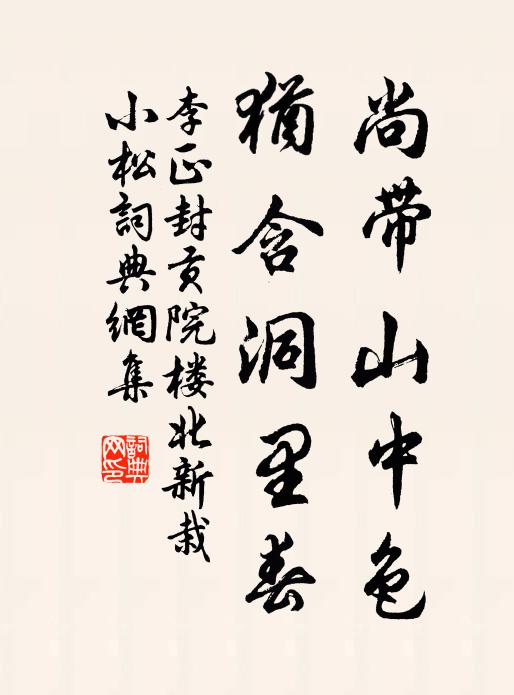 尚带山中色
猶含洞里春
李正封贡院楼北新栽
小松詞典網集
詞典
网印